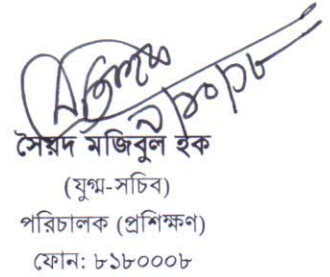 সৈয়দ মজিবুল হক
(যুগ্ম-সচিব)
পরিচালক (প্রশিক্ষণ)
ফোন: ৮১৮০০০৮